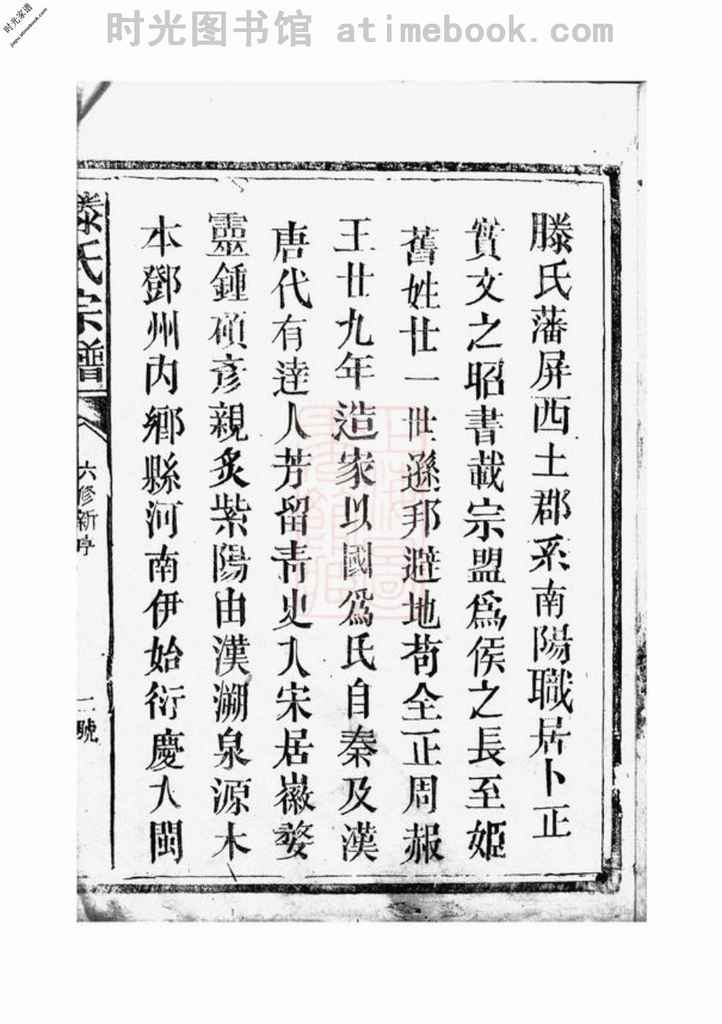 时光图书馆 atimebook.com
时光家谱
jiapu.atimebook.com
滕氏藩屏西土郡系南陽職居卜正
實文之昭書載宗盟爲侯之長至姬
舊姓廿一世遜邦避地苟全正周赧
王廿九年造家以國爲氏自秦及漢
唐代有達人芳留青史入宋居徽婺
靈鍾碩彥親炙紫陽由漢溯泉源木
本鄧州內鄉縣河南伊始衍慶入閩
滕氏宗譜
六修新序
二號